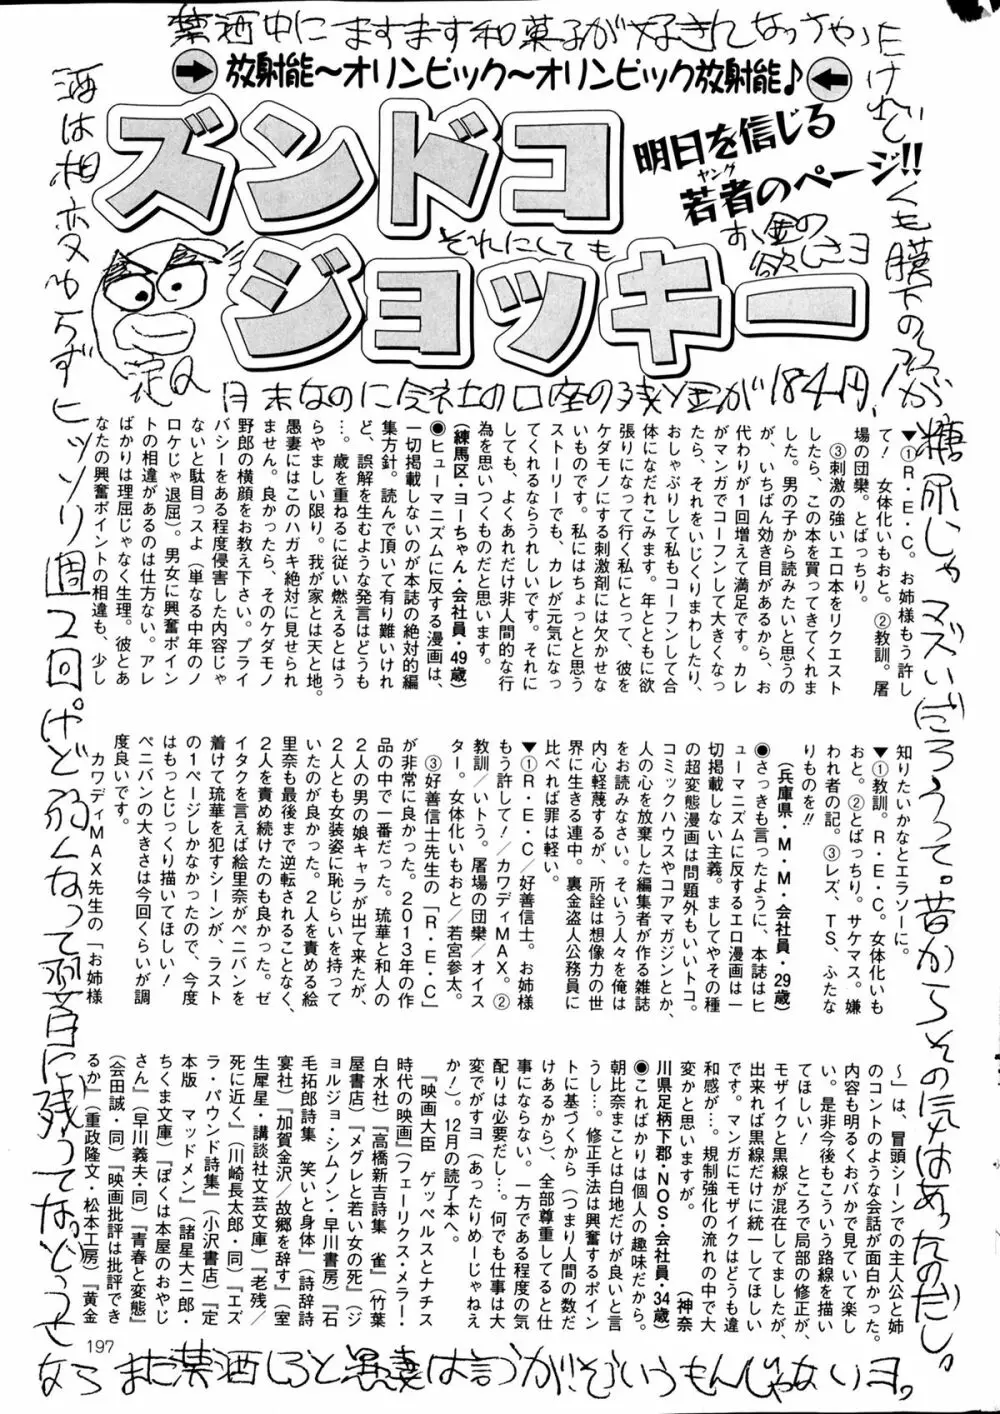 禁酒中にますます和菓子が好きになっちゃった
けれど
放射能〜オリンピック〜オリンピック放射能♪
ズンドコ
ジョッキー
明日を信じる
若者のページ!!
ヤング
それにしても
お金の
欲しさヨ
月末なのに会社の口座の残金が184円!
酒は相変わらずヒッソリ週2回。けど弱くなって翌日に残ってなっどうさ
くも膜下のろが
糖尿じゃマズいだろうって。昔からその気はあったのだし。
▼①R・E・C。お姉様もう許し
て！　女体化いもおと。②教訓。屠
場の団欒。とばっちり。
③刺激の強いエロ本をリクエスト
したら、この本を買ってきてくれま
した。男の子から読みたいと思うの
が、いちばん効き目があるから、お
代わりが1回増えて満足です。カレ
がマンガでコーフンして大きくなっ
たら、それをいじくりまわしたり、
おしゃぶりして私もコーフンして合
体になだれこみます。年とともに欲
張りになって行く私にとって、彼を
ケダモノにする刺激剤には欠かせな
いものです。私にはちょっとと思う
ストーリーでも、カレが元気になっ
てくれるならうれしいです。それに
しても、よくあれだけ非人間的な行
為を思いつくものだと思います。
（練馬区・ヨーちゃん・会社員・49歳）
●ヒューマニズムに反する漫画は、
一切掲載しないのが本誌の絶対的編
集方針。読んで頂いて有り難いけれ
ど、誤解を生むような発言はどうも
…。歳を重ねるに従い燃えるとはう
らやましい限り。我が家とは天と地。
愚妻にはこのハガキ絶対に見せられ
ません。良かったら、そのケダモノ
野郎の横顔をお教え下さい。プライ
バシーをある程度侵害した内容じゃ
ないと駄目っスよ（単なる中年のノ
ロケじゃ退屈）。男女に興奮ポイン
トの相違があるのは仕方ない。アレ
ばかりは理屈じゃなく生理。彼とあ
なたの興奮ポイントの相違も、少し
知りたいかなとエラソーに。
▼①教訓。R・E・C。女体化いも
おと。②とばっちり。サケマス。嫌
われ者の記。③レズ、TS、ふたな
りものを!!
（兵庫県・M・M・会社員・29歳）
●さっきも言ったように、本誌はヒ
ューマニズムに反するエロ漫画は一
切掲載しない主義。ましてやその種
の超変態漫画は問題外もいいトコ。
コミックハウスやコアマガジンとか、
人の心を放棄した編集者が作る雑誌
をお読みなさい。そういう人々を俺は
内心軽蔑するが、所詮は想像力の世
界に生きる連中。裏金盗人公務員に
比べれば罪は軽い。
▼①R・E・C/好善信士。お姉様
もう許して！/カワディMAX。②
教訓/いトう。屠場の団欒/オイス
ター。女体化いもおと/若宮参太。
③好善信士先生の「R・E・C」
が非常に良かった。2013年の作
品の中で一番だった。琉華と和人の
2人の男の娘キャラが出て来たが、
2人とも女装姿に恥じらいを持って
いたのが良かった。2人を責める絵
里奈も最後まで逆転されることなく、
2人を責め続けたのも良かった。ゼ
イタクを言えば絵里奈がペニバンを
着けて琉華を犯すシーンが、ラスト
の1ページしかなかったので、今度
はもっとじっくり描いてほしい！
ペニバンの大きさは今回くらいが調
度良いです。
カワディMAX先生の「お姉様
〜」は、冒頭シーンでの主人公と姉
のコントのような会話が面白かった。
内容も明るくおバカで見ていて楽し
い。是非今後もこういう路線を描い
てほしい！　ところで局部の修正が、
モザイクと黒線が混在してましたが、
出来れば黒線だけに統一してほしい
です。マンガにモザイクはどうも違
和感が…。規制強化の流れの中で大
変かと思いますが。
（神奈
川県足柄下郡・NOS・会社員・34歳）
●こればかりは個人の趣味だから。
朝比奈まことは白地だけが良いと言
うし…。修正手法は興奮するポイン
トに基づくから（つまり人間の数だ
けあるから）、全部尊重してると仕
事にならない。一方である程度の気
配りは必要だし…。何でも仕事は大
変でがすヨ（あったりめーじゃねえ
か！）。12月の読了本へ。
『映画大臣　ゲッベルスとナチス
時代の映画』（フェーリクス・メラー！
白水社）『高橋新吉詩集　雀』（竹葉
屋書店）『メグレと若い女の死』（ジ
ョルジョ・シムノン・早川書房）『石
毛拓郎詩集　笑いと身体』（詩辞詩
宴社）『加賀金沢/故郷を辞す』（室
生犀星・講談社文芸文庫）『老残/
死に近く』（川崎長太郎・同）『エズ
ラ・パウンド詩集』（小沢書店）『定
本版　マッドメン』（諸星大二郎・
ちくま文庫）『ぼくは本屋のおやじ
さん』（早川義夫・同）『青春と変態』
（会田誠・同）『映画批評は批評でき
るか』（重政隆文・松本工房）『黄金
197
ならまた禁酒しろと愚妻は言うが！そういうもんじゃないヨ。